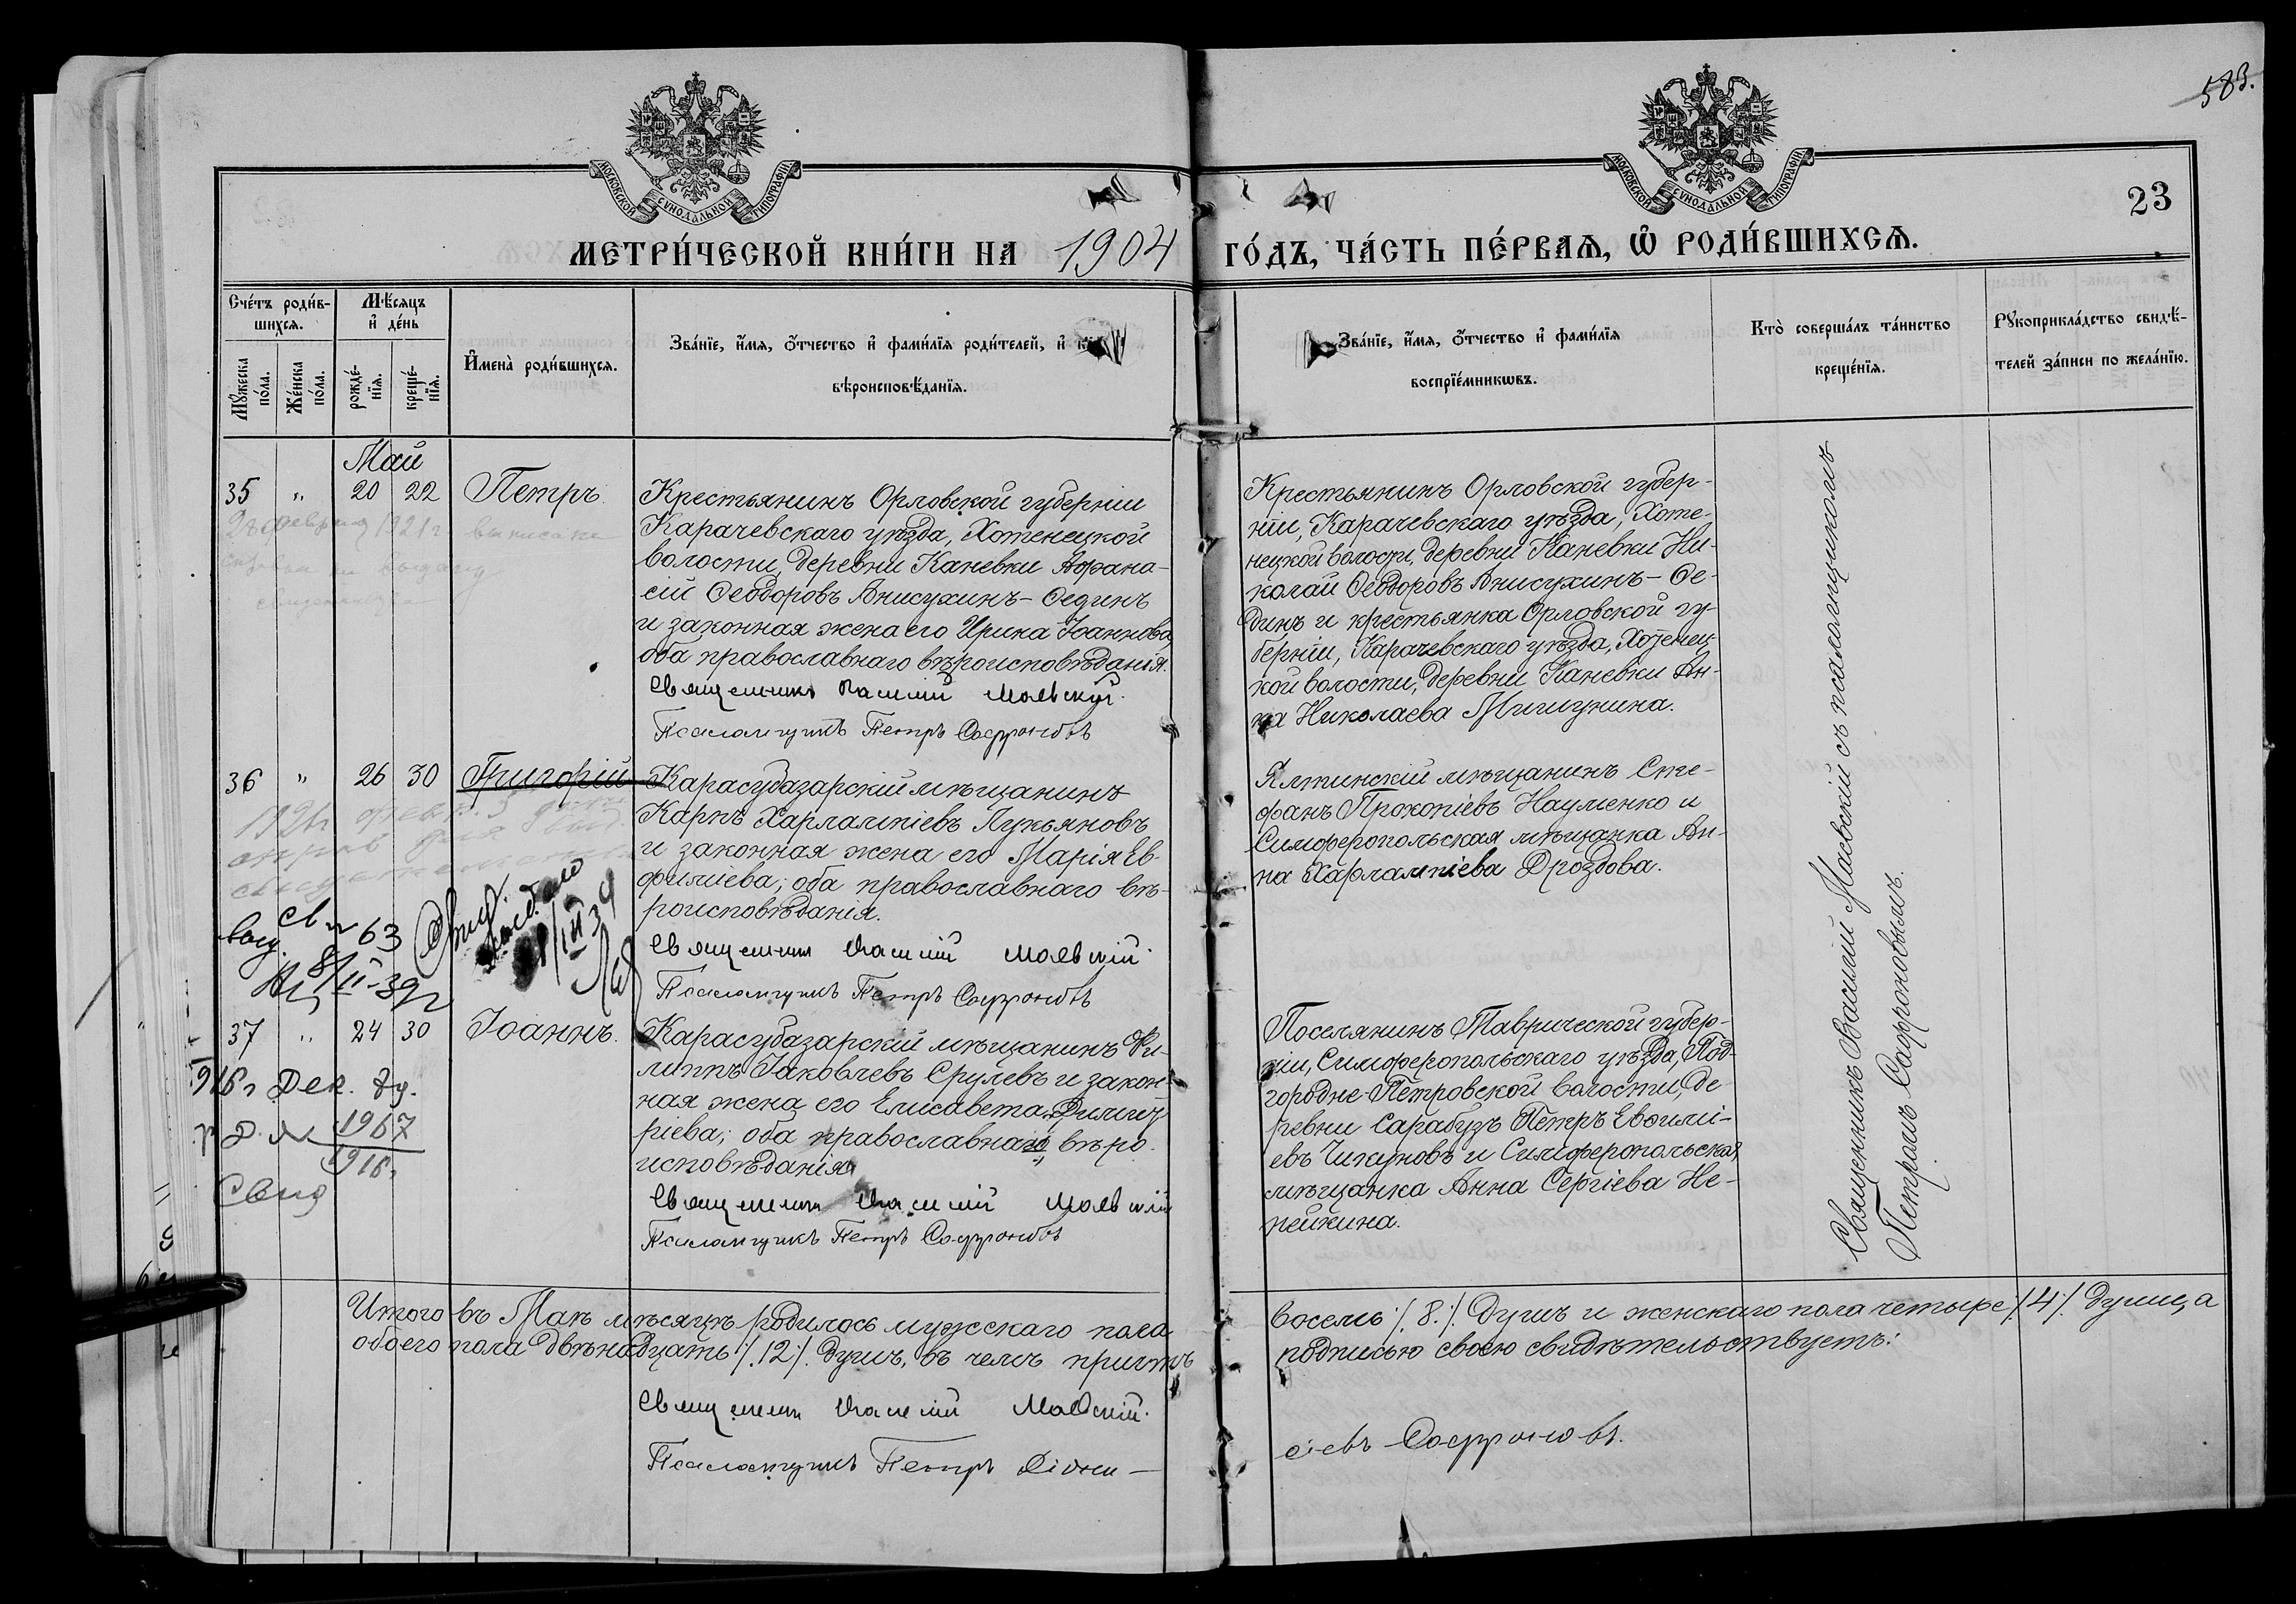 583.
23
МОСКОВСКОЙ СѴНОДАЛЬНОЙ ТИПОГРАФІИ
МОСКОВСКОЙ СѴНОДАЛЬНОЙ ТИПОГРАФІИ
МЕТРИ́ЧЕСКОЙ КНИ́ГИ НА 1904 ГО́ДЪ, ЧА́СТЬ ПЕ́РВАѦ, Ѡ҆ РОДИ́ВШИХСѦ.
Сче́тъ роди́в-
шихсѧ.
Мѣ́сѧцъ
и҆ де́нь
Мꙋ́жеска
по́ла.
Же́нска
по́ла.
рожде́-
нїѧ.
креще́-
нїѧ.
И҆мена̀ роди́вшихсѧ.
Зва́нїе, и҆́мѧ, ѻ҆́тчество и҆ фами́лїѧ роди́телей, и҆
вѣроисповѣ́данїѧ.
Зва́нїе, и҆́мѧ, ѻ҆́тчество и҆ фами́лїѧ
воспрїе́мникѡвъ.
Кто̀ соверша́лъ та́инство
креще́нїѧ.
Рꙋкоприкла́дство свидѣ́-
телей за́писи по жела́нїю.
Май
35 " 20 22 Петръ.
Крестьянинъ Орловской губерніи
Карачевскаго уѣзда, Хотенецкой
волости, деревни Каневки Афана-
сій Ѳеодоровъ Анисухинъ-Ѳединъ
и законная жена его Ирина Іоаннова,
оба православнаго вѣроисповѣданія.
Священникъ Василій Маевскій.
Псаломщикъ Петръ Софроновъ
Крестьянинъ Орловской губер-
ніи, Карачевскаго уѣзда, Хоте-
нецкой волости, деревни Каневки Ни-
колай Ѳеодоровъ Анисухинъ-Ѳе-
динъ и крестьянка Орловской гу-
берніи, Карачевскаго уѣзда, Хотенец-
кой волости, деревни Каневки Ан-
на Николаева Мишунина.
36 " 26 30 Григорій
Карасубазарскій мѣщанинъ
Карпъ Харлампіевъ Лукьяновъ
и законная жена его Марія Ев-
фиміева; оба православнаго вѣ-
роисповѣданія.
Священникъ Василій Маевскій.
Псаломщикъ Петръ Софроновъ
Ялтинскій мѣщанинъ Сте-
фанъ Прокопіевъ Науменко и
Симферопольская мѣщанка Ан-
на Харлампіева Дроздова.
Св № 63
37 " 24 30 Іоаннъ.
Карасубазарскій мѣщанинъ Фи-
липпъ Іаковлевъ Срулевъ и закон-
ная жена его Елисавета Димит-
ріева; оба православнаго вѣро-
исповѣданія.
Священникъ Василій Маевскій
Псаломщикъ Петръ Софроновъ
Поселянинъ Таврической губер-
ніи, Симферопольскаго уѣзда, Под-
городне-Петровской волости, де-
ревни Сарабузъ Петръ Евѳимі-
евъ Чикуновъ и Симферопольская
мѣщанка Анна Сергіева Не-
пейкина.
Дек.
1967
1916
Свид
Священникъ Василій Маевскій съ псаломщикомъ
Петромъ Софроновымъ.
Итого въ Маѣ мѣсяцѣ родилось мужскаго пола восемь /.8./ душъ и женскаго пола четыре /.4/. души, а
обоего пола двѣнадцать /.12/. душъ, въ чемъ причтъ подписью своею свидѣтельствуетъ:
Священникъ Василій Маевскій.
Псаломщикъ Петръ Діони-
сіевъ Софроновъ.